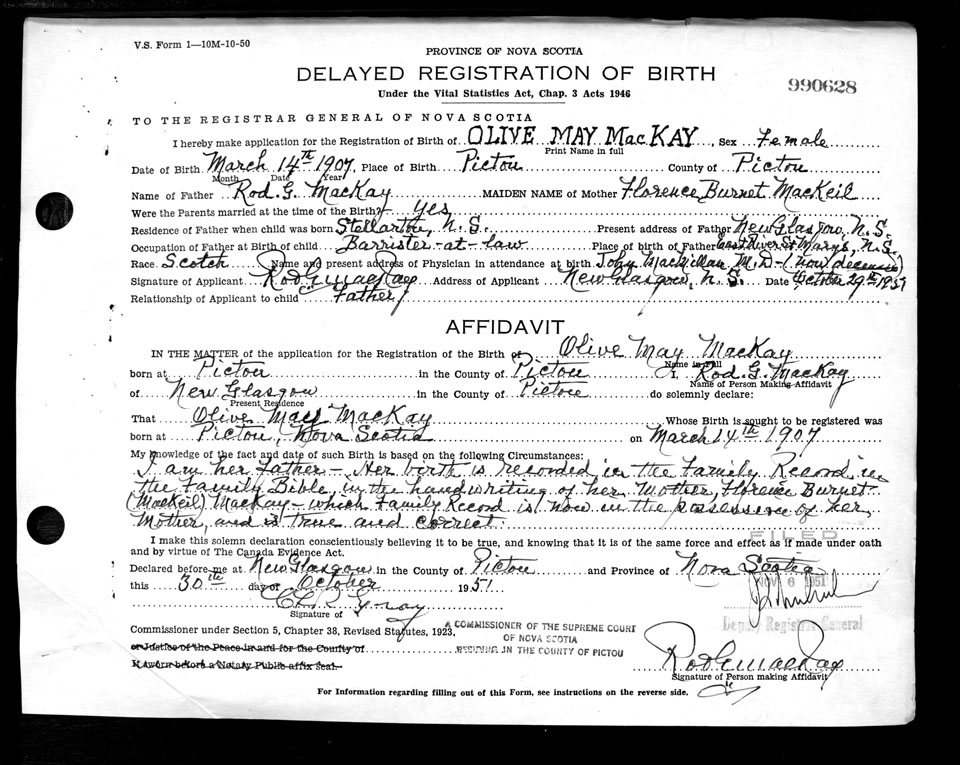 V.S. Form 1—10M-10-50
PROVINCE OF NOVA SCOTIA
DELAYED REGISTRATION OF BIRTH
990628
Under the Vital Statistics Act, Chap. 3 Acts 1946
TO THE REGISTRAR GENERAL OF NOVA SCOTIA
I hereby make application for the Registration of Birth of OLIVE MAY MacKAY, Sex Female
Print Name in full
Date of Birth March 14th 1907, Place of Birth Pictou County of Pictou
Month Date Year
Name of Father Rod. G. MacKay MAIDEN NAME of Mother Florence Burnet MacKeil
Were the Parents married at the time of the Birth? Yes
Residence of Father when child was born Stellarton, N.S. Present address of Father New Glasgow, N.S.
Occupation of Father at Birth of child Barrister-at-law Place of birth of Father East River St Marys, N.S.
Race Scotch Name and present address of Physician in attendance at birth John MacMillan M.D. - (now deceased)
Signature of Applicant Rod G MacKay Address of Applicant New Glasgow, N.S. Date October 29th 1951
Relationship of Applicant to child Father
AFFIDAVIT
IN THE MATTER of the application for the Registration of the Birth of Olive May MacKay
Name in Full
born at Pictou in the County of Pictou I, Rod. G. MacKay
Name of Person Making Affidavit
of New Glasgow in the County of Pictou do solemnly declare:
Present Residence
That Olive May MacKay Whose Birth is sought to be registered was
born at Pictou, Nova Scotia on March 14th 1907
My knowledge of the fact and date of such Birth is based on the following Circumstances:
I am her Father - Her birth is recorded in the Family Record in
the Family Bible, in the handwriting of her Mother, Florence Burnet
(MacKeil) MacKay - which Family Record is now in the possession of her
Mother, and is true and correct.
FILED
I make this solemn declaration conscientiously believing it to be true, and knowing that it is of the same force and effect as if made under oath
and by virtue of The Canada Evidence Act.
Declared before me at New Glasgow in the County of Pictou and Province of Nova Scotia
this 30th day of October 1951
NOV 6 1951
Signature of
Deputy Registrar General
Commissioner under Section 5, Chapter 38, Revised Statutes, 1923,
A COMMISSIONER OF THE SUPREME COURT
OF NOVA SCOTIA
or Justice of the Peace in and for the County of
RESIDING IN THE COUNTY OF PICTOU
If sworn before a Notary Public affix Seal.
Rod G MacKay
Signature of Person making Affidavit
For Information regarding filling out of this Form, see instructions on the reverse side.